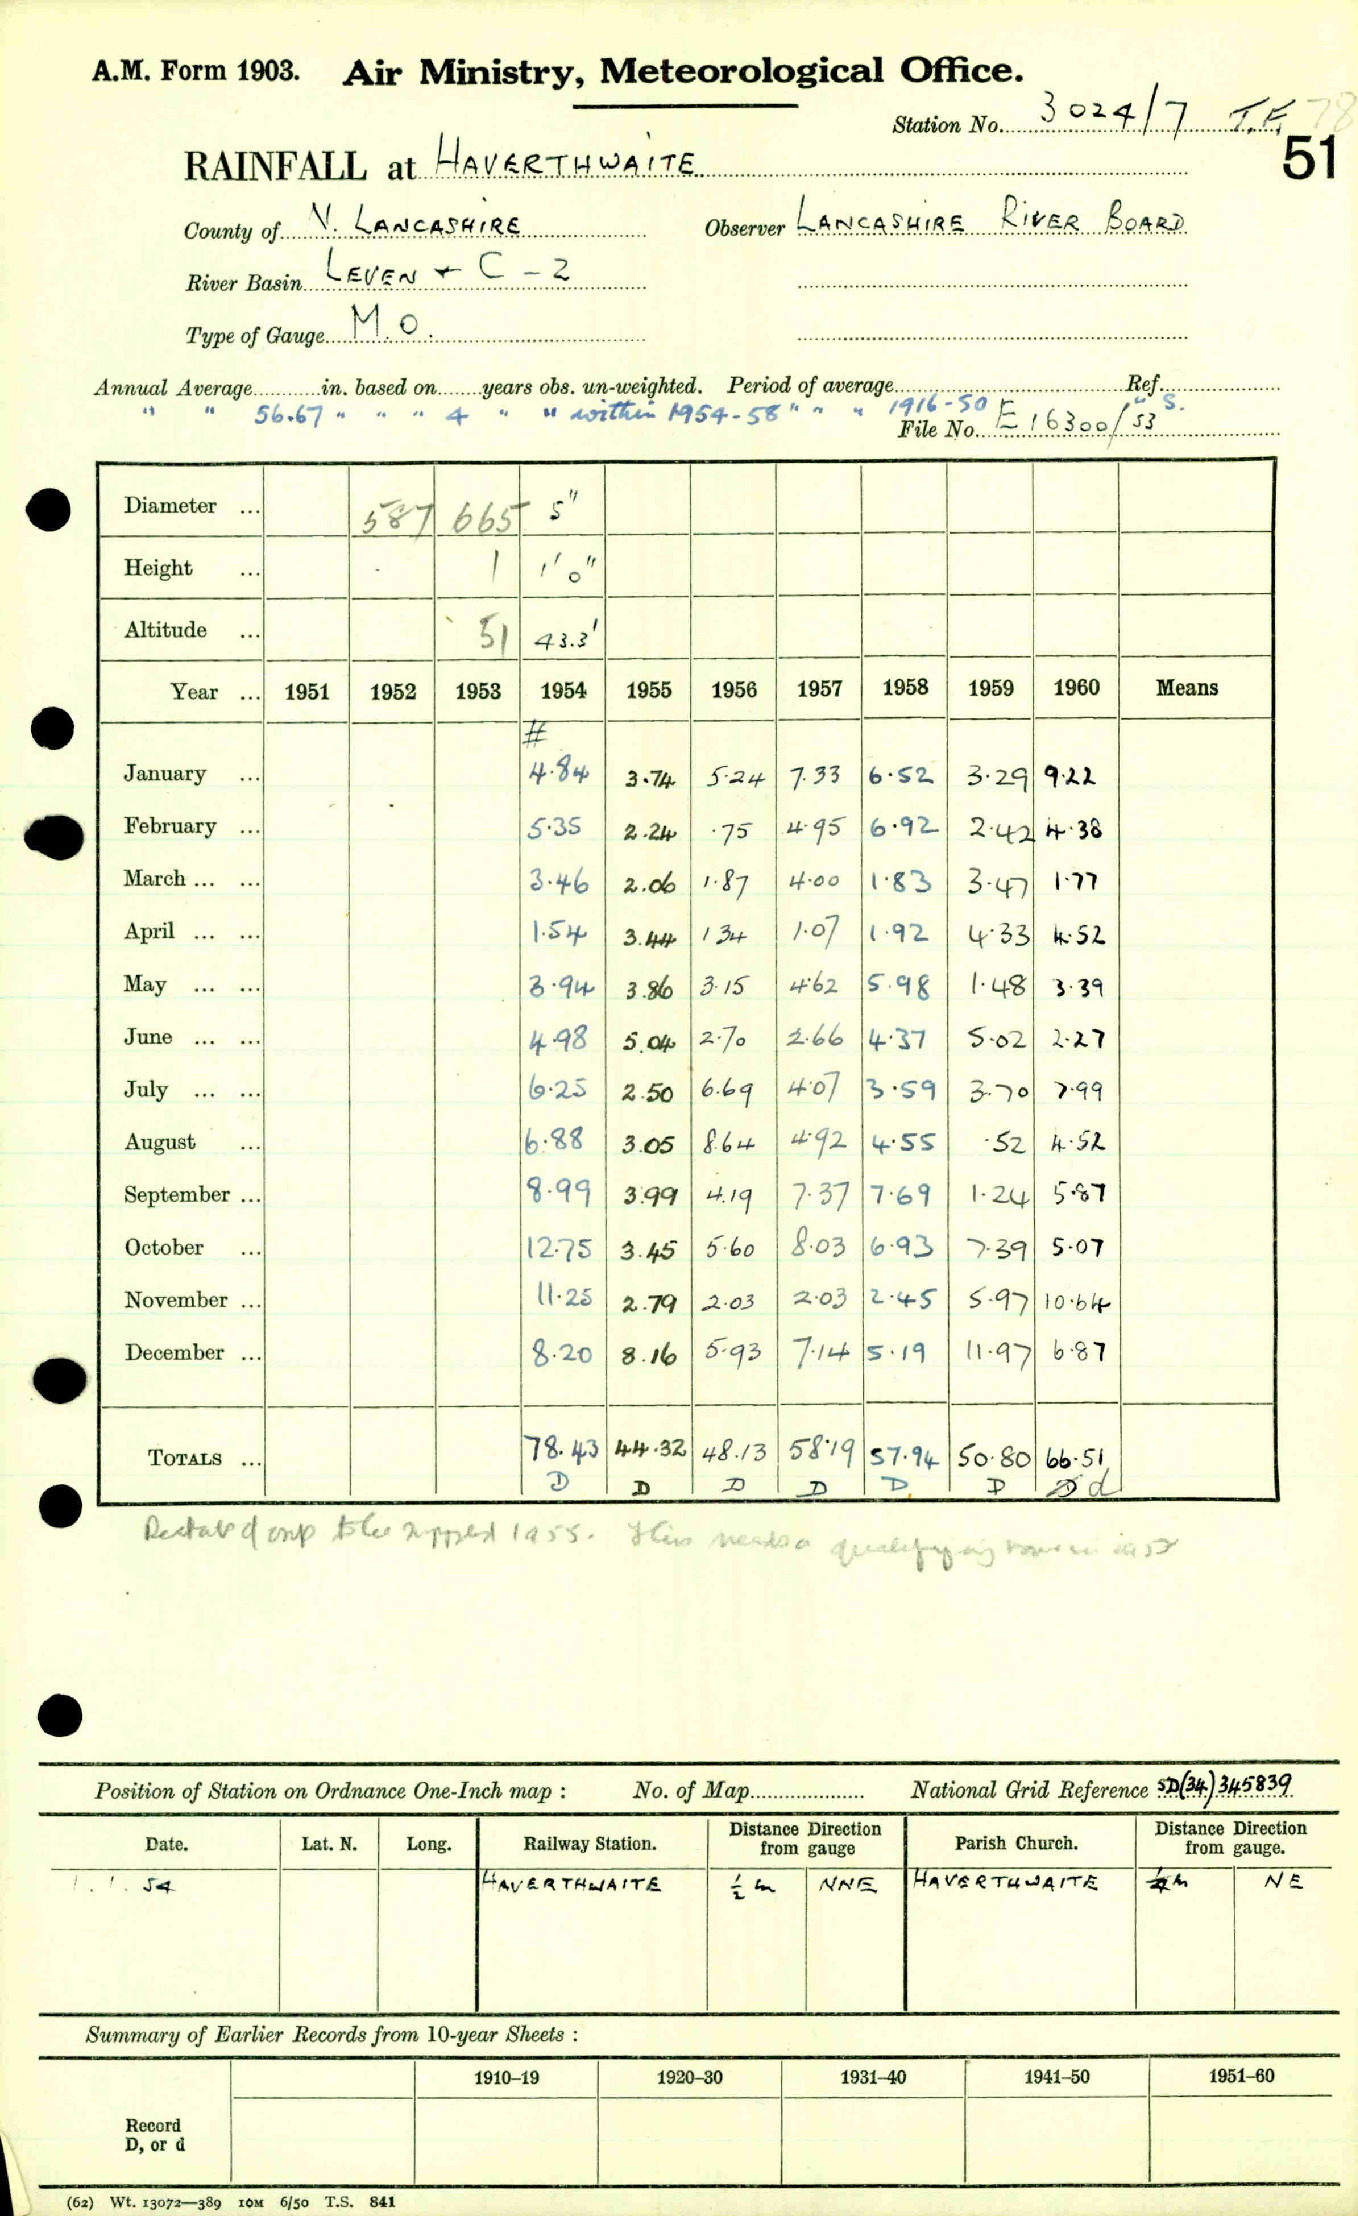 A.M. Form 1903. Air Ministry, Meteorological Office.
Station No. 3024/7 T.F. 78
51
RAINFALL at HAVERTHWAITE
County of N. LANCASHIRE Observer LANCASHIRE RIVER BOARD
River Basin LEVEN + C - 2
Type of Gauge M.O.
Annual Average in. based on years obs. un-weighted. Period of average Ref.
" " 56.67 " " " 4 " " within 1954-58 " " " 1916-50 " S.
File No. E 16300/53
Diameter ... 587 665 5"
Height ... 1 1' 0"
Altitude ... 51 43.3'
Year ... 1951 1952 1953 1954 1955 1956 1957 1958 1959 1960 Means
#
January ... 4.84 3.74 5.24 7.33 6.52 3.29 9.22
February ... 5.35 2.24 .75 4.95 6.92 2.42 4.38
March ... ... 3.46 2.06 1.87 4.00 1.83 3.47 1.77
April ... ... 1.54 3.44 1 34 1.07 1.92 4.33 4.52
May ... ... 3.94 3.86 3.15 4.62 5.98 1.48 3.39
June ... ... 4.98 5.04 2.70 2.66 4.37 5.02 2.27
July ... ... 6.25 2.50 6.69 4.07 3.59 3.70 7.99
August ... 6.88 3.05 8.64 4.92 4.55 .52 4.52
September ... 8.99 3.99 4.19 7.37 7.69 1.24 5.87
October ... 12.75 3.45 5.60 8.03 6.93 7.39 5.07
November ... 11.25 2.79 2.03 2.03 2.45 5.97 10.64
December ... 8.20 8.16 5.93 7.14 5.19 11.97 6.87
TOTALS ... 78.43 44.32 48.13 58.19 57.94 50.80 66.51
D D D D D D D d
1955. This needs a qualifying
Position of Station on Ordnance One-Inch map : No. of Map National Grid Reference SD(34)345839
Date. Lat. N. Long. Railway Station. Distance Direction from gauge Parish Church. Distance Direction from gauge.
1.1.54 HAVERTHWAITE ½ m NNE HAVERTHWAITE ¼ m NE
Summary of Earlier Records from 10-year Sheets :
1910–19 1920–30 1931–40 1941–50 1951–60
Record
D, or d
(62) Wt. 13072—389 10M 6/50 T.S. 841